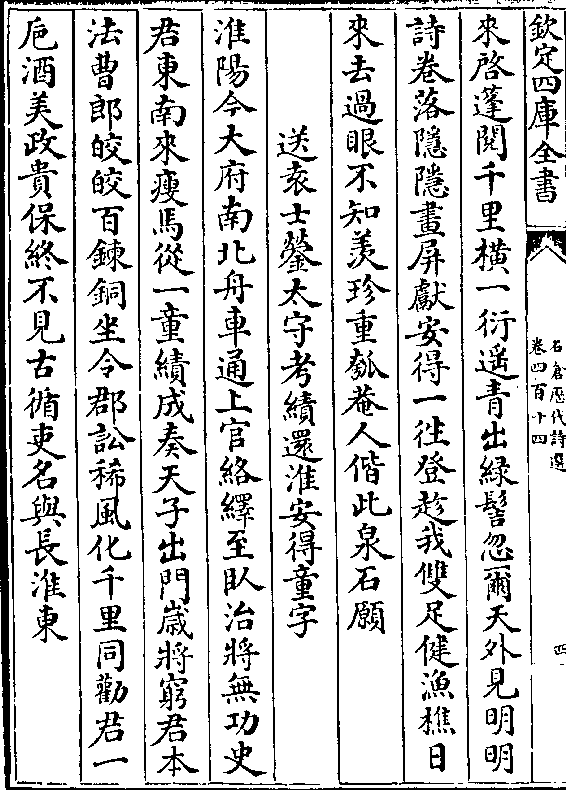 欽定四庫全書
石倉歷代詩選
卷四百十四
四
來啓蓬閣千里橫一衍遥青出緑髻忽爾天外見明明
詩卷落隱隱畫屏獻安得一徃登趁我雙足健漁樵日
來去過眼不知羡珍重瓠菴人偕此泉石願
送袁士鎣太守考績還淮安得童字
淮陽今大府南北舟車通上官絡繹至臥治將無功史
君東南來瘦馬從一童績成奏天子出門嵗將窮君本
法曹郎皎皎百鍊銅坐令郡訟稀風化千里同勸君一
巵酒美政貴保終不見古循吏名與長淮東